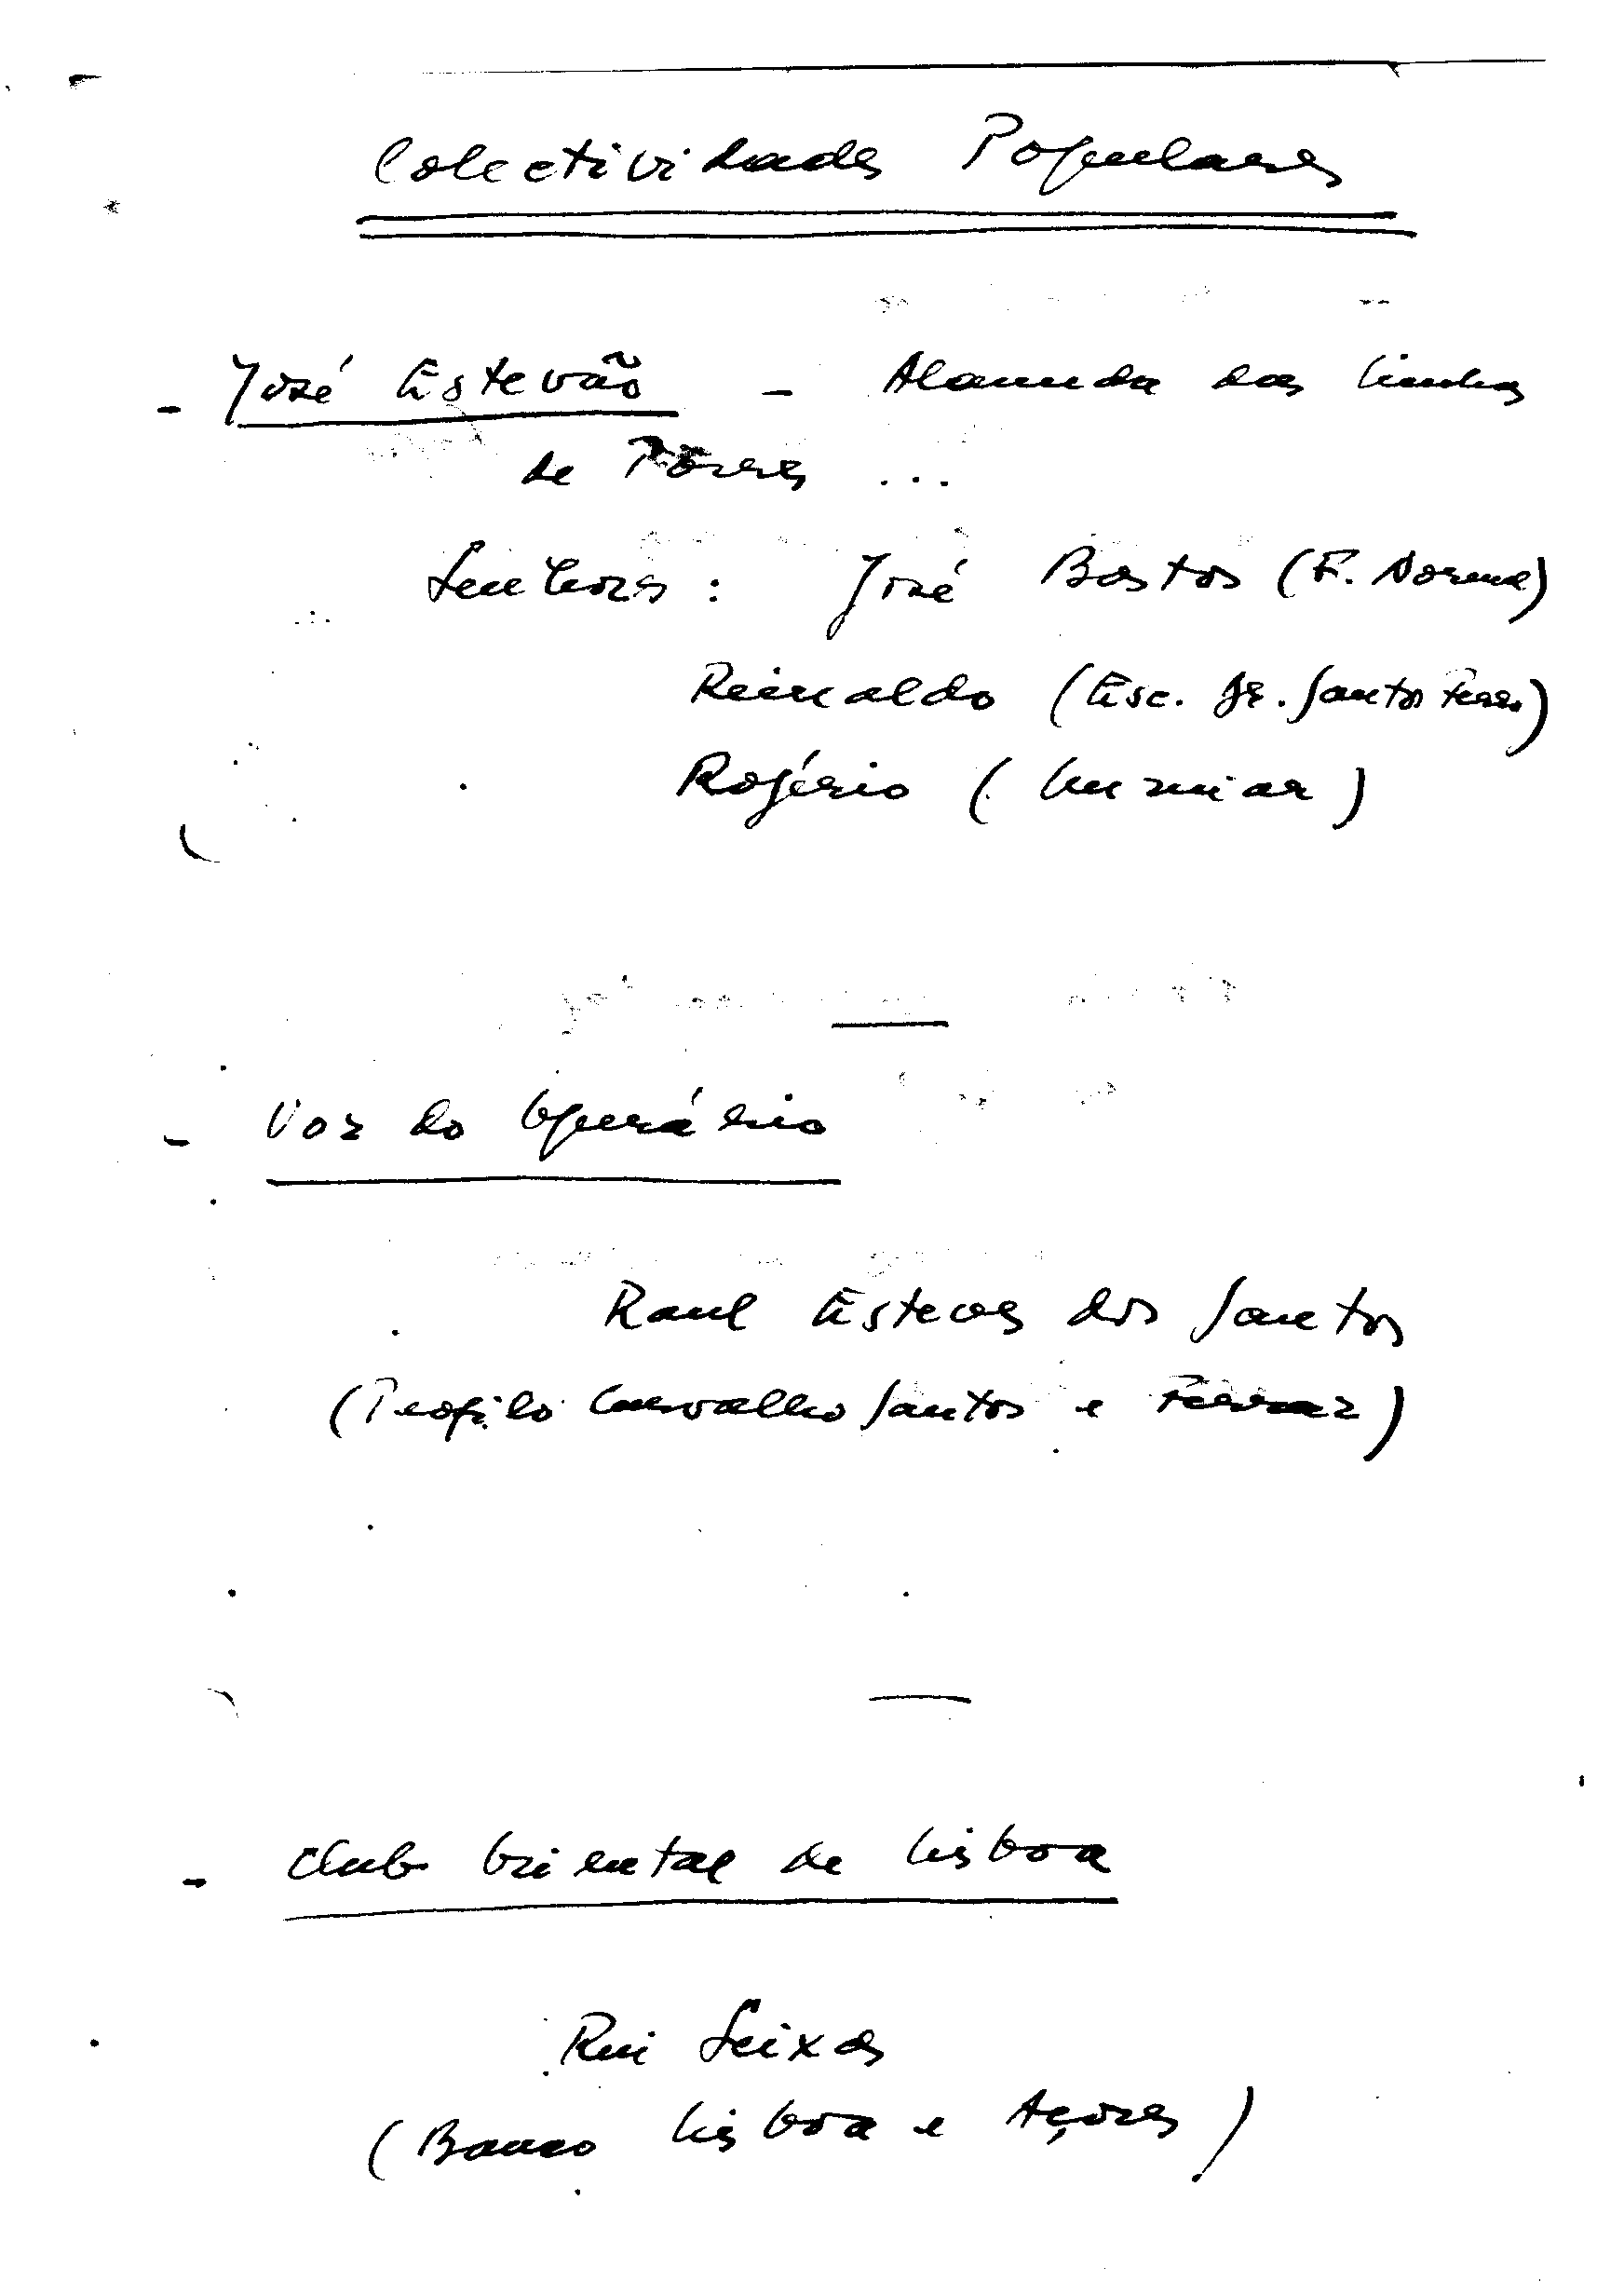 Colectividades Populares
- José Estevão - Alameda das Linhas
de Torres ...
Senhores: José Bastos (F. Norma)
Reinaldo (Esc. Dr. Santos Ferr.)
Rogério (Lumiar)
- Voz do Operário
Raul Esteves dos Santos
(Teofilo Carvalho Santos e Ferraz)
- Club Oriental de Lisboa
Rui Seixas
(Banco Lisboa e Açores)